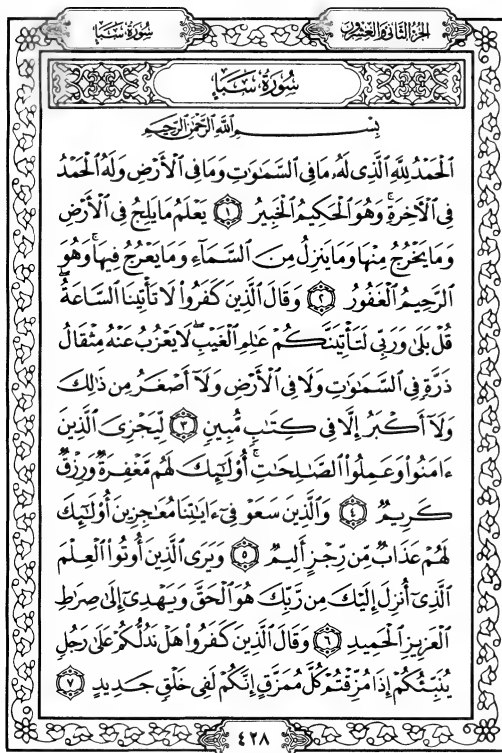 سُورَةُ سَبَإٍ
الجُزْءُ الثَّانِي وَالعِشْرُونَ
سُورَةُ سَبَإٍ
بِسْمِ اللَّهِ الرَّحْمَٰنِ الرَّحِيمِ
الْحَمْدُ لِلَّهِ الَّذِي لَهُۥ مَا فِي السَّمَٰوَٰتِ وَمَا فِي الْأَرْضِ وَلَهُ الْحَمْدُ
فِي الْآخِرَةِ ۚ وَهُوَ الْحَكِيمُ الْخَبِيرُ ١ يَعْلَمُ مَا يَلِجُ فِي الْأَرْضِ
وَمَا يَخْرُجُ مِنْهَا وَمَا يَنزِلُ مِنَ السَّمَآءِ وَمَا يَعْرُجُ فِيهَا ۚ وَهُوَ
الرَّحِيمُ الْغَفُورُ ٢ وَقَالَ الَّذِينَ كَفَرُوا۟ لَا تَأْتِينَا السَّاعَةُ ۖ
قُلْ بَلَىٰ وَرَبِّي لَتَأْتِيَنَّكُمْ عَٰلِمِ الْغَيْبِ ۖ لَا يَعْزُبُ عَنْهُ مِثْقَالُ
ذَرَّةٍ فِي السَّمَٰوَٰتِ وَلَا فِي الْأَرْضِ وَلَآ أَصْغَرُ مِن ذَٰلِكَ
وَلَآ أَكْبَرُ إِلَّا فِي كِتَٰبٍ مُّبِينٍ ٣ لِّيَجْزِيَ الَّذِينَ
ءَامَنُوا۟ وَعَمِلُوا۟ الصَّٰلِحَٰتِ ۚ أُو۟لَٰٓئِكَ لَهُم مَّغْفِرَةٌ وَرِزْقٌ
كَرِيمٌ ٤ وَالَّذِينَ سَعَوْ فِيٓ ءَايَٰتِنَا مُعَٰجِزِينَ أُو۟لَٰٓئِكَ
لَهُمْ عَذَابٌ مِّن رِّجْزٍ أَلِيمٌ ٥ وَيَرَى الَّذِينَ أُوتُوا۟ الْعِلْمَ
الَّذِيٓ أُنزِلَ إِلَيْكَ مِن رَّبِّكَ هُوَ الْحَقَّ وَيَهْدِيٓ إِلَىٰ صِرَٰطِ
الْعَزِيزِ الْحَمِيدِ ٦ وَقَالَ الَّذِينَ كَفَرُوا۟ هَلْ نَدُلُّكُمْ عَلَىٰ رَجُلٍ
يُنَبِّئُكُمْ إِذَا مُزِّقْتُمْ كُلَّ مُمَزَّقٍ إِنَّكُمْ لَفِي خَلْقٍ جَدِيدٍ ٧
٤٢٨